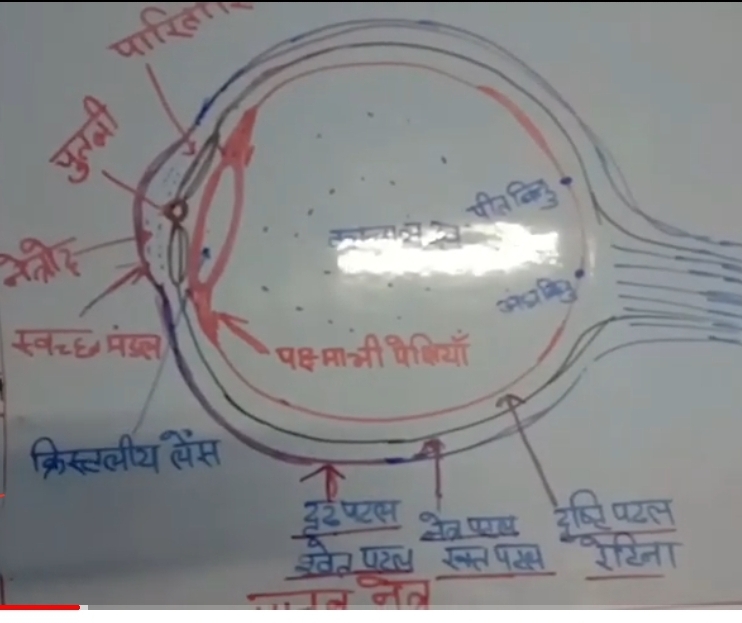 पुतली
नेत्रोद
स्वच्छ मंडल
पीत बिन्दु
अन्ध बिन्दु
पक्ष्माभी पेशियाँ
क्रिस्टलीय लेंस
दृढ़ पटल
श्वेत पटल
नेत्र पटल
रक्त पटल
दृष्टि पटल
रेटिना
मानव नेत्र